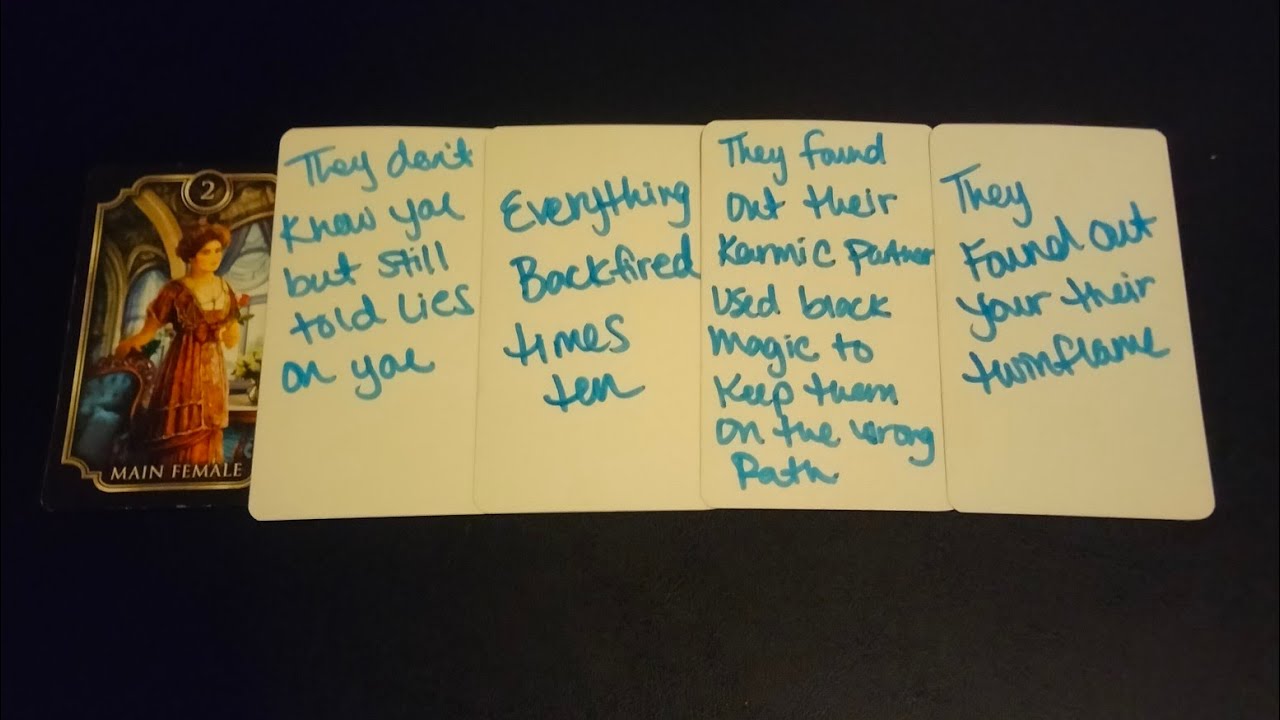 2
MAIN FEMALE
They don't
know you
but still
told lies
on you
Everything
Backfired
times
ten
They found
out their
Karmic Partner
Used black
magic to
Keep them
on the wrong
Path
They
Found out
your their
twinflame